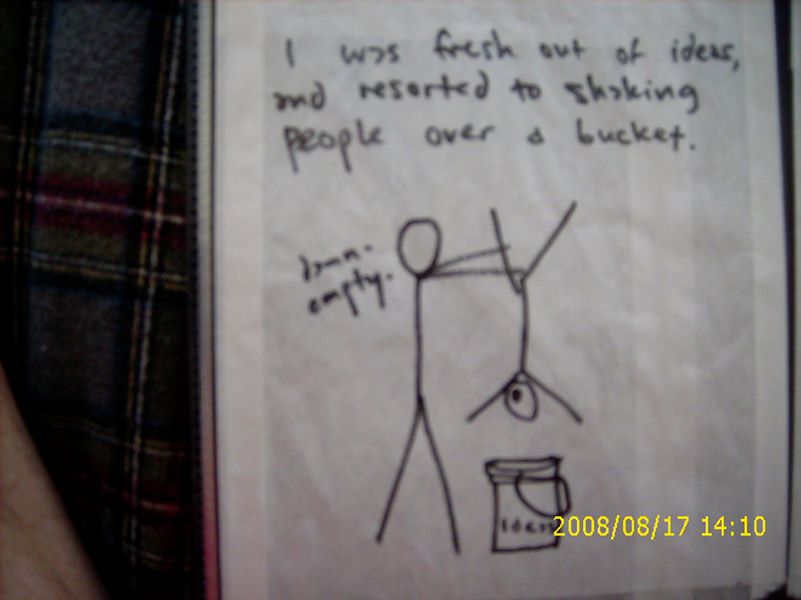 I was fresh out of ideas,
and resorted to shaking
people over a bucket.
damn.
empty.
Ideas
2008/08/17 14:10